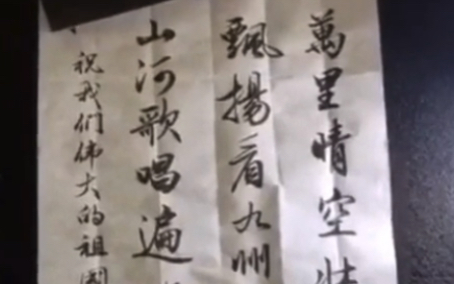 萬里晴空壯
飄揚看九州
山河歌唱遍
祝我们伟大的祖国